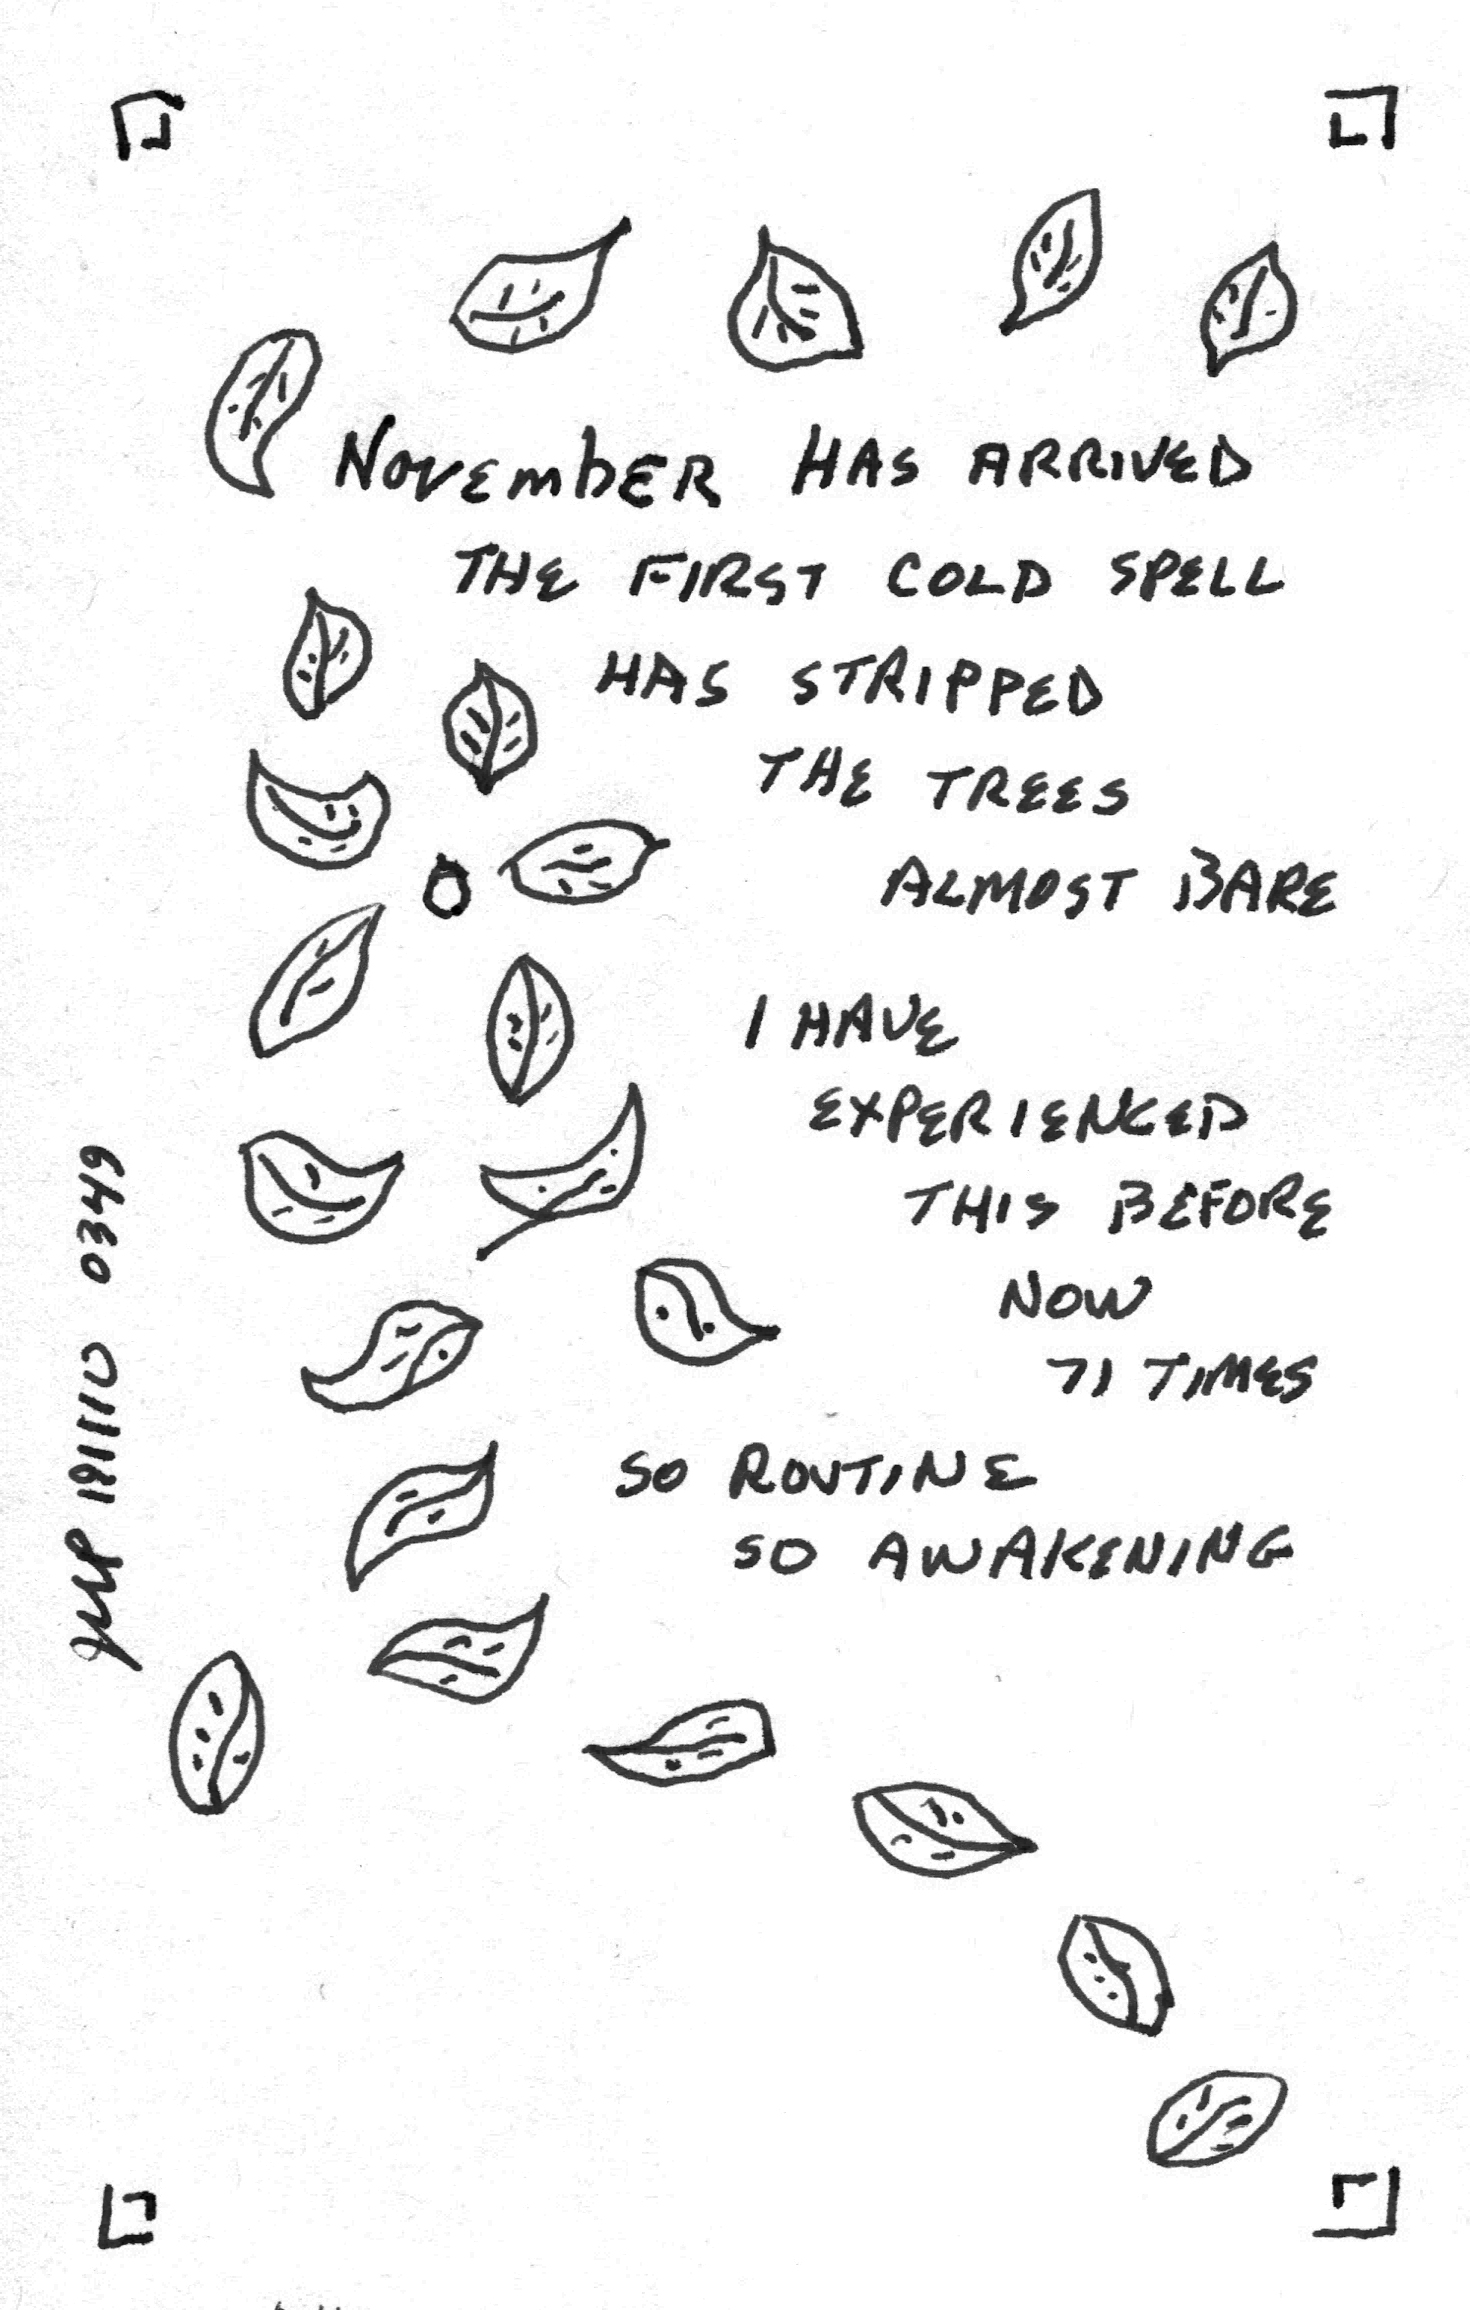 November HAS ARRIVED
THE FIRST COLD SPELL
HAS STRIPPED
THE TREES
ALMOST BARE
I HAVE
EXPERIENCED
THIS BEFORE
NOW
71 TIMES
SO ROUTINE
SO AWAKENING
191110 0349